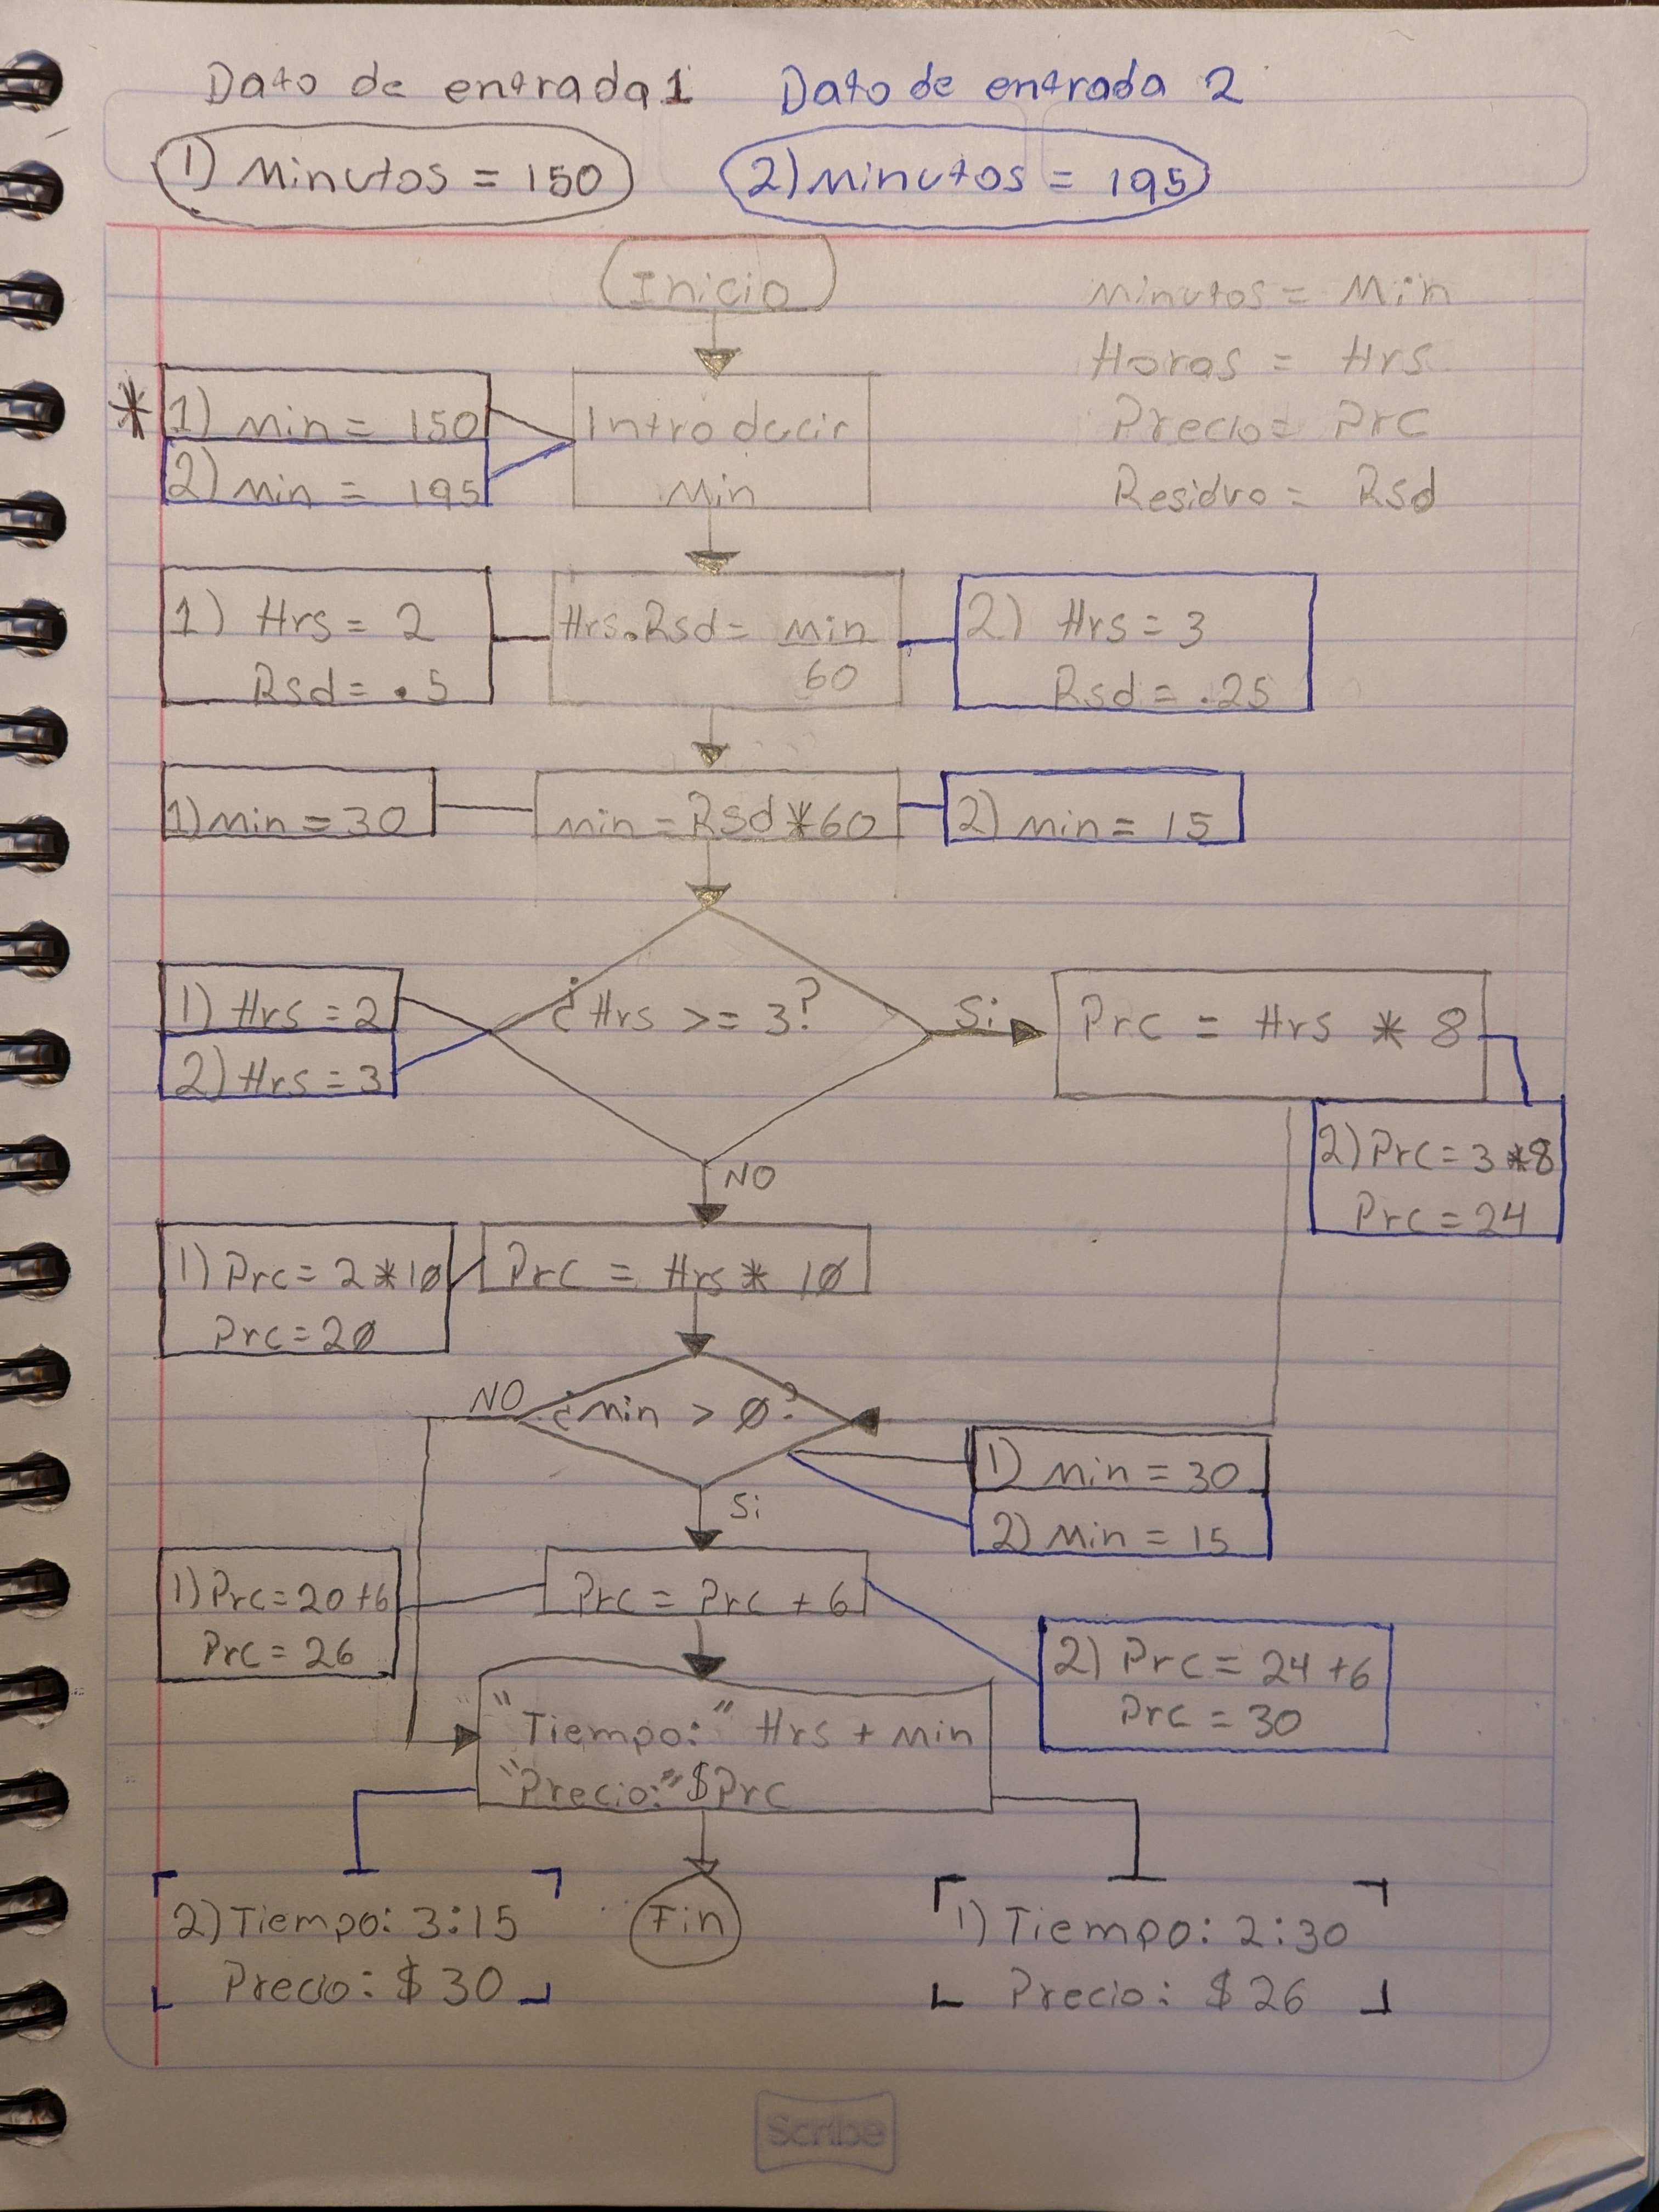 Dato de entrada 1 Dato de entrada 2
1) Minutos = 150 2) minutos = 195
Inicio
Minutos = Min
Horas = Hrs
Precio = Prc
Residuo = Rsd
* 1) min = 150
2) min = 195
Introducir
Min
1) Hrs = 2
Rsd = .5
Hrs.Rsd = min
60
2) Hrs = 3
Rsd = .25
1) min = 30
min = Rsd * 60
2) min = 15
1) Hrs = 2
2) Hrs = 3
¿Hrs >= 3?
Si
Prc = Hrs * 8
2) Prc = 3 * 8
Prc = 24
NO
1) Prc = 2 * 10
Prc = 20
Prc = Hrs * 10
NO
¿min > 0?
1) min = 30
2) Min = 15
Si
1) Prc = 20 + 6
Prc = 26
Prc = Prc + 6
2) Prc = 24 + 6
Prc = 30
"Tiempo:" Hrs + min
"Precio:" $Prc
2) Tiempo: 3:15
Precio: $30
Fin
1) Tiempo: 2:30
Precio: $26
Scribe